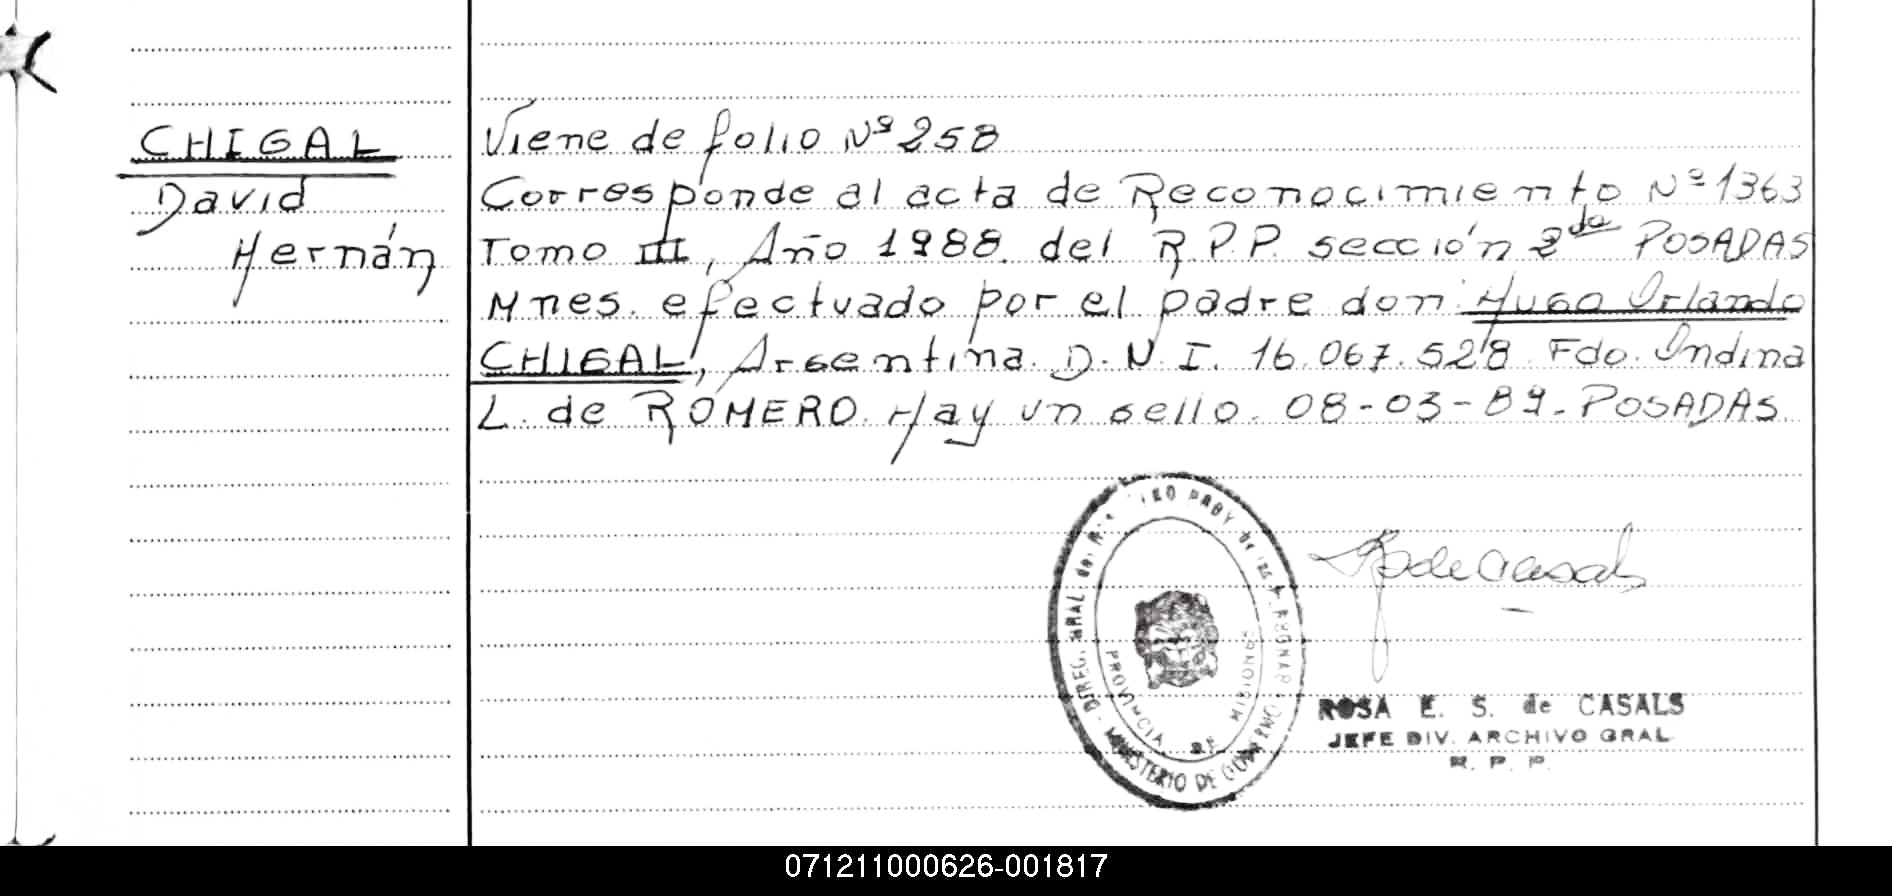 CHIGAL
David
Hernán
Viene de folio Nº 258
Corresponde al acta de Reconocimiento Nº 1363
Tomo III, Año 1988. del R.P.P. sección 2da POSADAS
Mnes. efectuado por el padre don Hugo Orlando
CHIGAL, Argentina. D.N.I. 16.067.528 Fdo. Indina
L. de ROMERO. Hay un sello. 08-03-89. POSADAS.
DIREC. GRAL del
MINISTERIO DE GOBIERNO
PROVINCIA DE MISIONES
R de Casals
ROSA E. S. de CASALS
JEFE DIV. ARCHIVO GRAL
R. P. P.
071211000626-001817